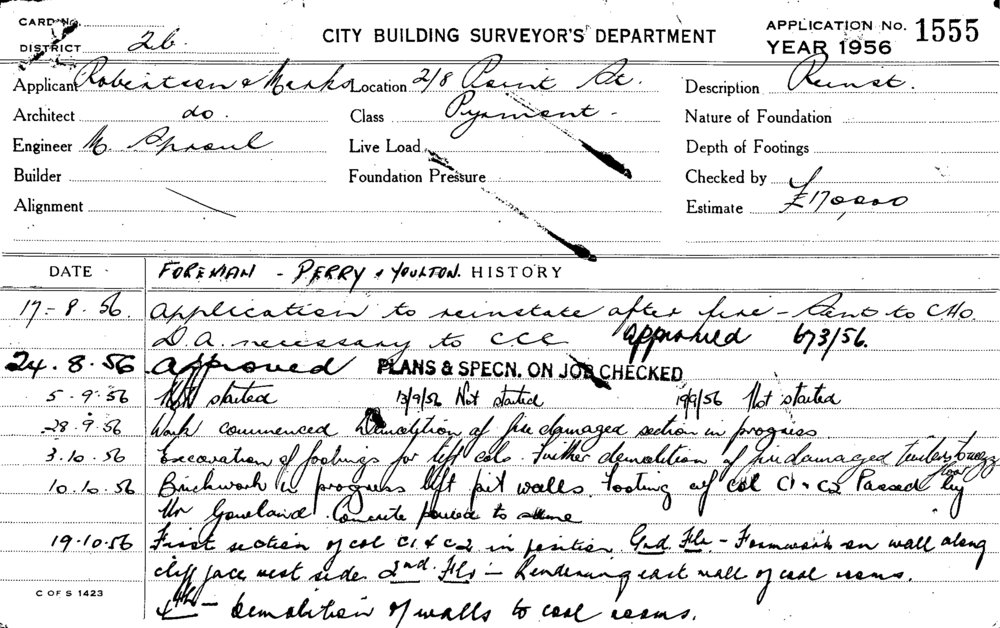 CARD No.
DISTRICT 26.
CITY BUILDING SURVEYOR'S DEPARTMENT
APPLICATION No. 1555
YEAR 1956
Applicant Robertson & Marks Location 2/8 Point St. Description Reinst.
Architect do. Class Pyrmont. Nature of Foundation
Engineer M. Sproul Live Load Depth of Footings
Builder Foundation Pressure Checked by
Alignment Estimate £170,000
DATE FOREMAN - PERRY & YOULTON. HISTORY
17-8.56. Application to reinstate after fire - sent to C.H.O.
D.A. necessary to CCC approved 6/3/56.
24.8.56 Approved PLANS & SPECN. ON JOB CHECKED
5.9.56 Not started 13/9/56 Not started 19/9/56 Not started
28.9.56 Work commenced Demolition of fire damaged section in progress
3.10.56 Excavation of footings for lift cols. Further demolition of fire damaged floor
10.10.56 Brickwork in progress lift pit walls. Footing of col C1 & C2 Passed by
Mr Concrete poured to same
19.10.56 First section of col C1 & C2 in position. Gnd. Flr - Formwork on wall along
cliff face west side. 2nd. Flr - Rendering east wall of cool rooms.
4th - Demolition of walls to cool rooms.
C OF S 1423